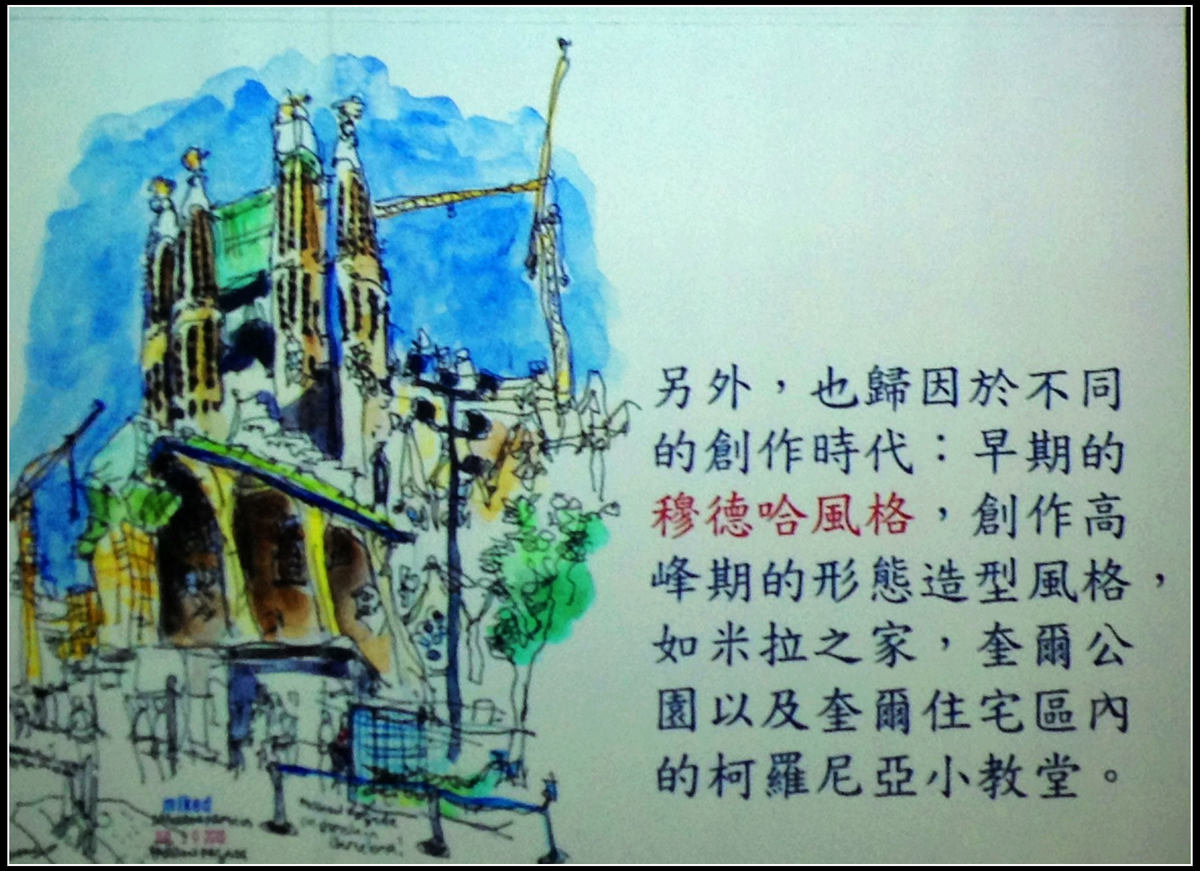 另外，也歸因於不同
的創作時代：早期的
穆德哈風格，創作高
峰期的形態造型風格，
如米拉之家，奎爾公
園以及奎爾住宅區內
的柯羅尼亞小教堂。
miked